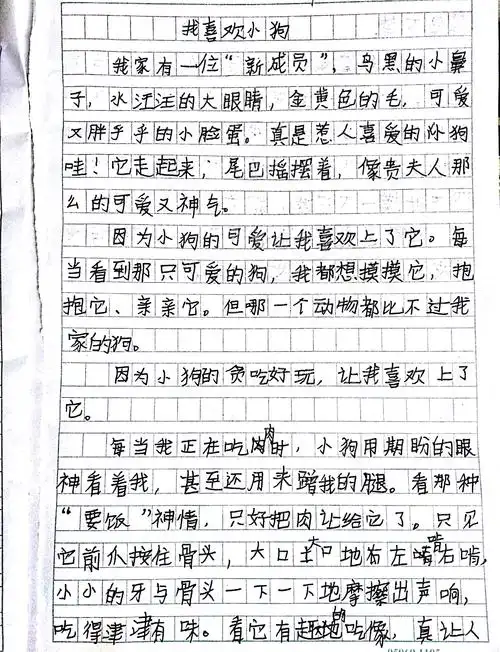 我喜欢小狗
我家有一位“新成员”，乌黑的小鼻
子，水汪汪的大眼睛，金黄色的毛，可爱
又胖乎乎的小脸蛋。真是惹人喜爱的小狗
哇！它走起来，尾巴摇摆着，像贵夫人那
么的可爱又神气。
因为小狗的可爱让我喜欢上了它。每
当看到那只可爱的狗，我都想摸摸它，抱
抱它、亲亲它。但哪一个动物都比不过我
家的狗。
因为小狗的贪吃好玩，让我喜欢上了
它。
每当我正在吃肉时，小狗用期盼的眼
神看着我，甚至还用来蹭我的腿。看那种
“要饭”神情，只好把肉让给它了。只见
它前爪按住骨头，大口大口地右左啃右啃，
小小的牙与骨头一下一下地摩擦出声响，
吃得津津有味。看它有趣的吃像，真让人